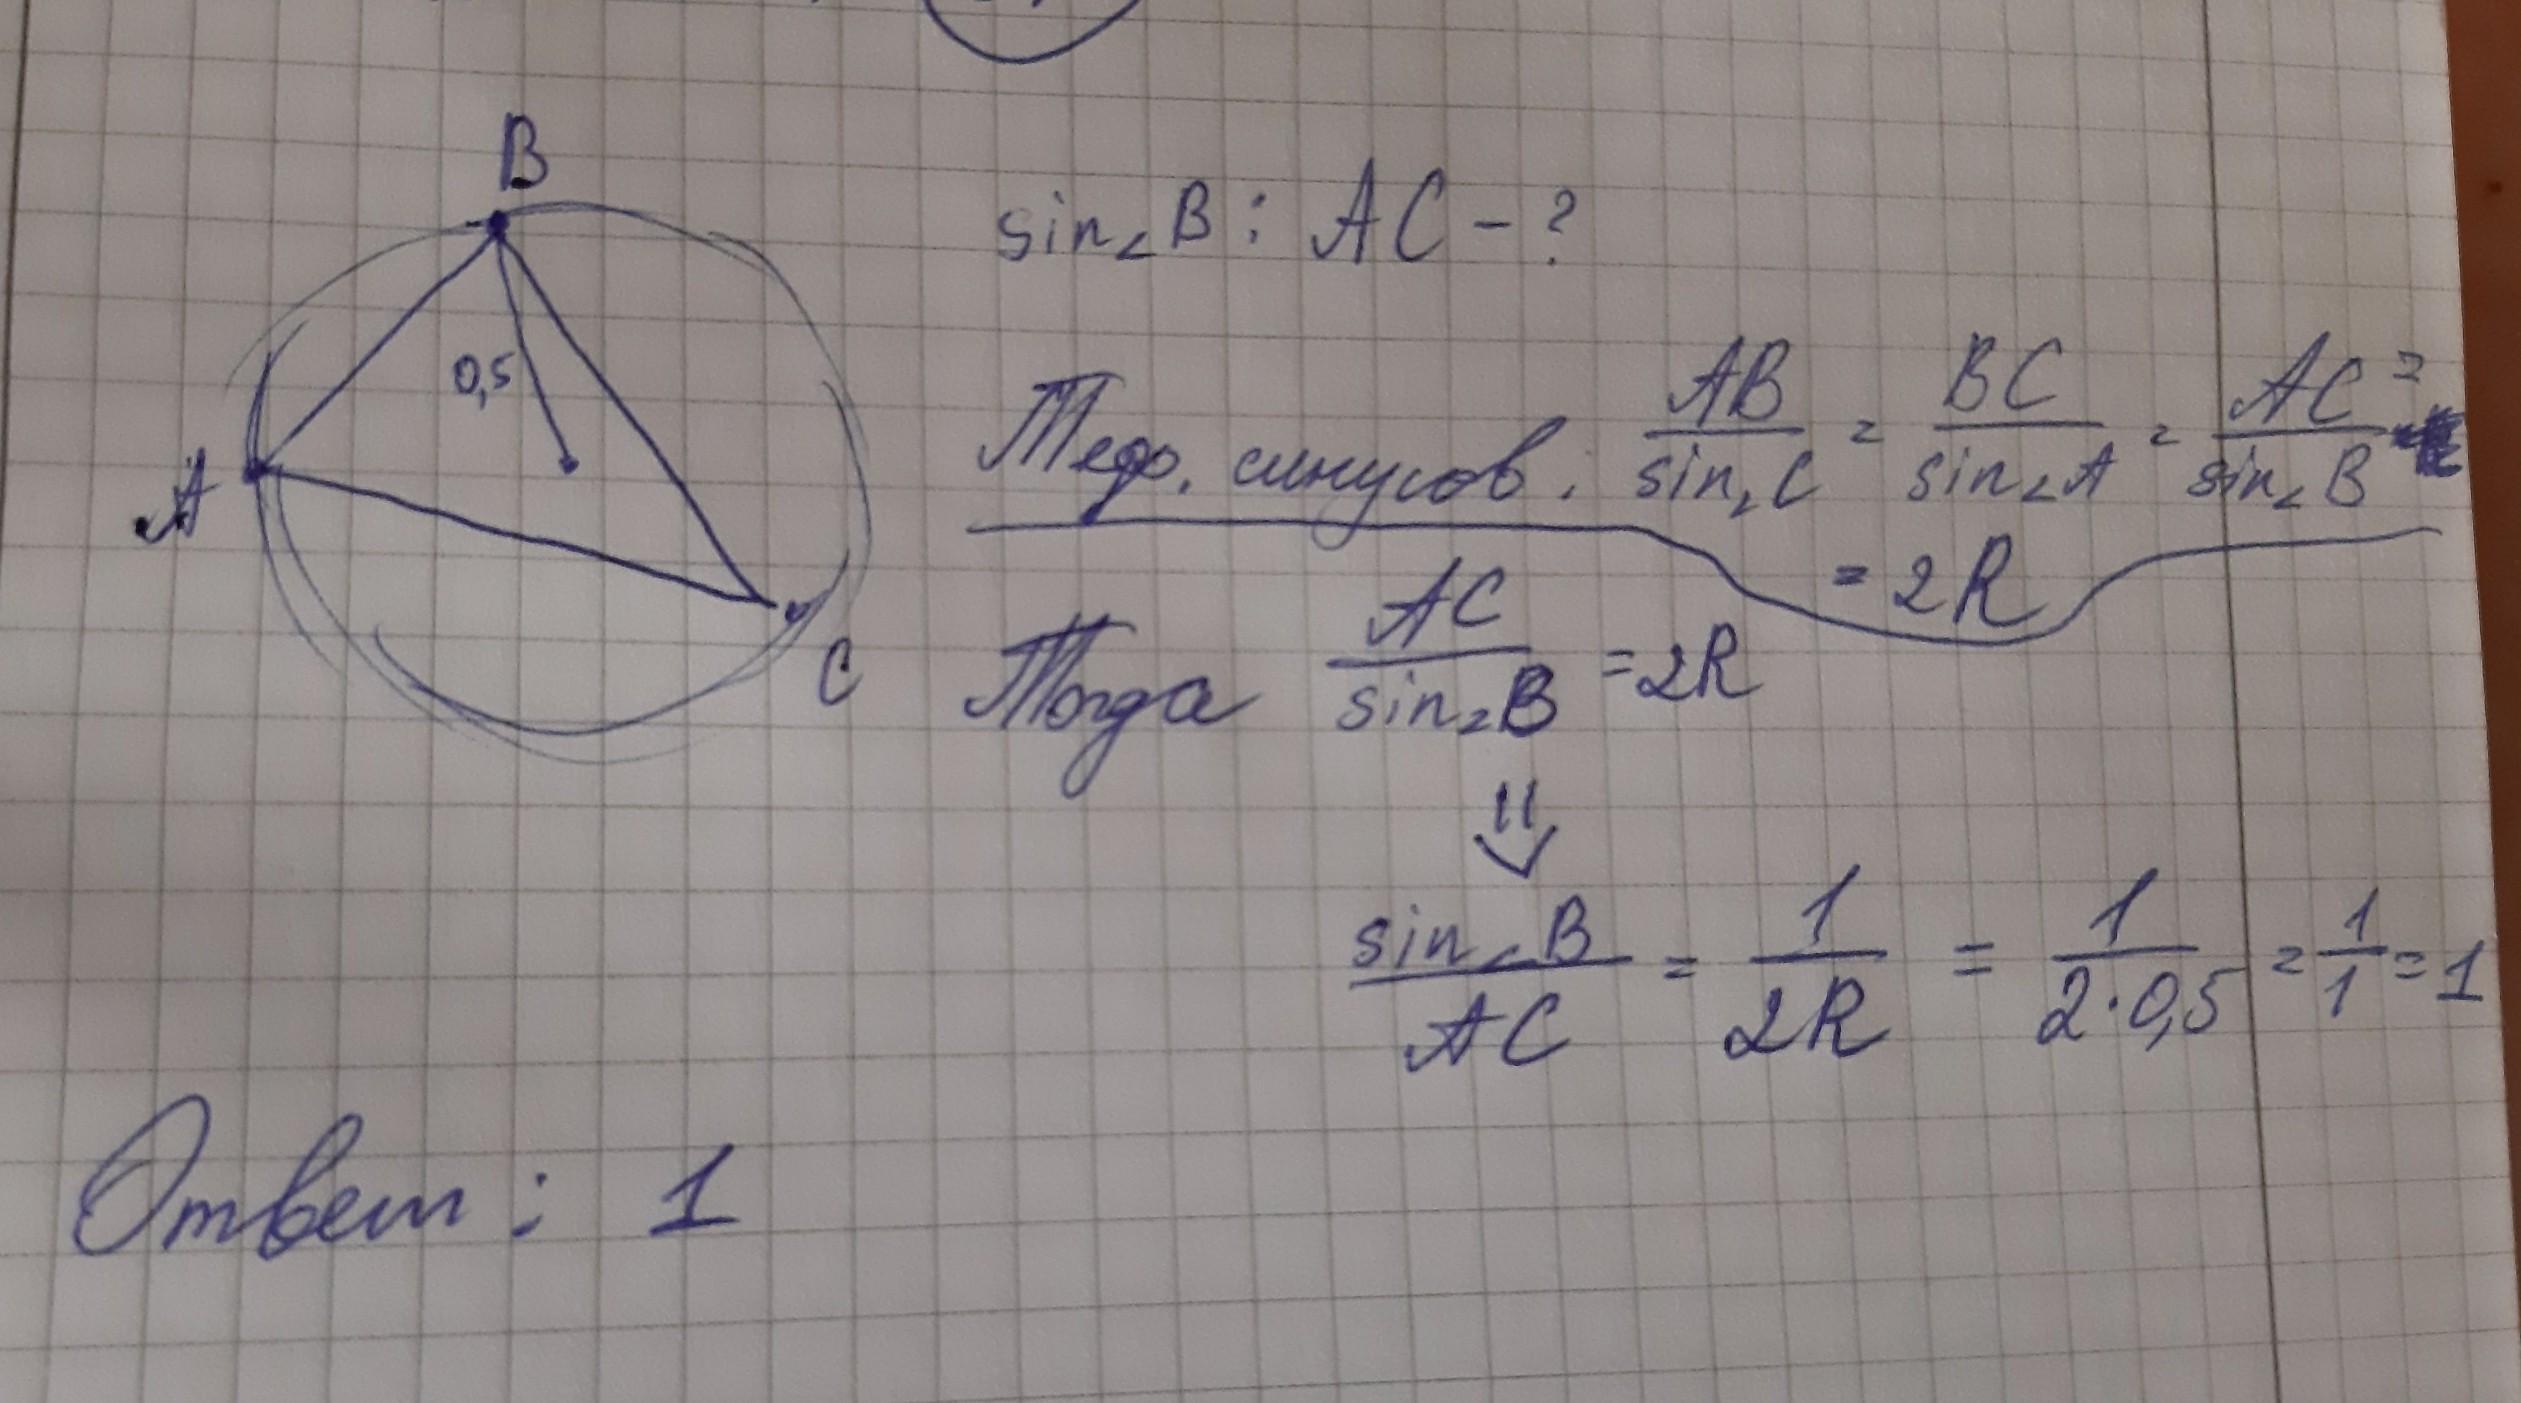 B
sin∠B : AC - ?
0,5
A
Теор. синусов: AB/sin∠C = BC/sin∠A = AC/sin∠B =
= 2R
C
Тогда AC/sin∠B = 2R
⇓
sin∠B/AC = 1/2R = 1/2·0,5 = 1/1 = 1
Ответ: 1